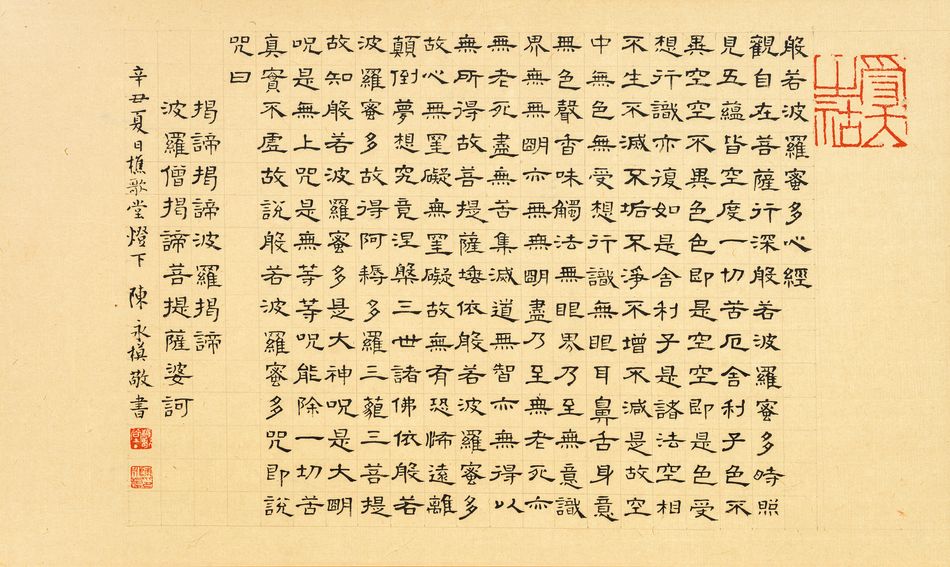 受天之祜
般若波羅蜜多心經
觀自在菩薩行深般若波羅蜜多時照
見五蘊皆空度一切苦厄舍利子色不
異空空不異色色即是空空即是色受
想行識亦復如是舍利子是諸法空相
不生不滅不垢不淨不增不減是故空
中無色無受想行識無眼耳鼻舌身意
無色聲香味觸法無眼界乃至無意識
界無無眀亦無無眀盡乃至無老死亦
無老死盡無苦集滅道無智亦無得以
無所得故菩提薩埵依般若波羅蜜多
故心無罣礙無罣礙故無有恐怖遠離
顛倒夢想究竟涅槃三世諸佛依般若
波羅蜜多故得阿耨多羅三藐三菩提
故知般若波羅蜜多是大神呪是大眀
呪是無上咒是無等等呪能除一切苦
真實不虛故說般若波羅蜜多咒即說
咒曰
揭諦揭諦波羅揭諦
波羅僧揭諦菩提薩婆訶
辛丑夏日樵歌堂燈下 陳永模敬書